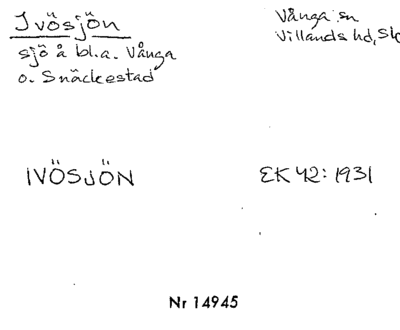 Ivösjön
sjö å bl.a. Vånga
o. Snäckestad
Vånga sn
Villands hd, Sk
IVÖSJÖN
EK 42: 1931
Nr 14945